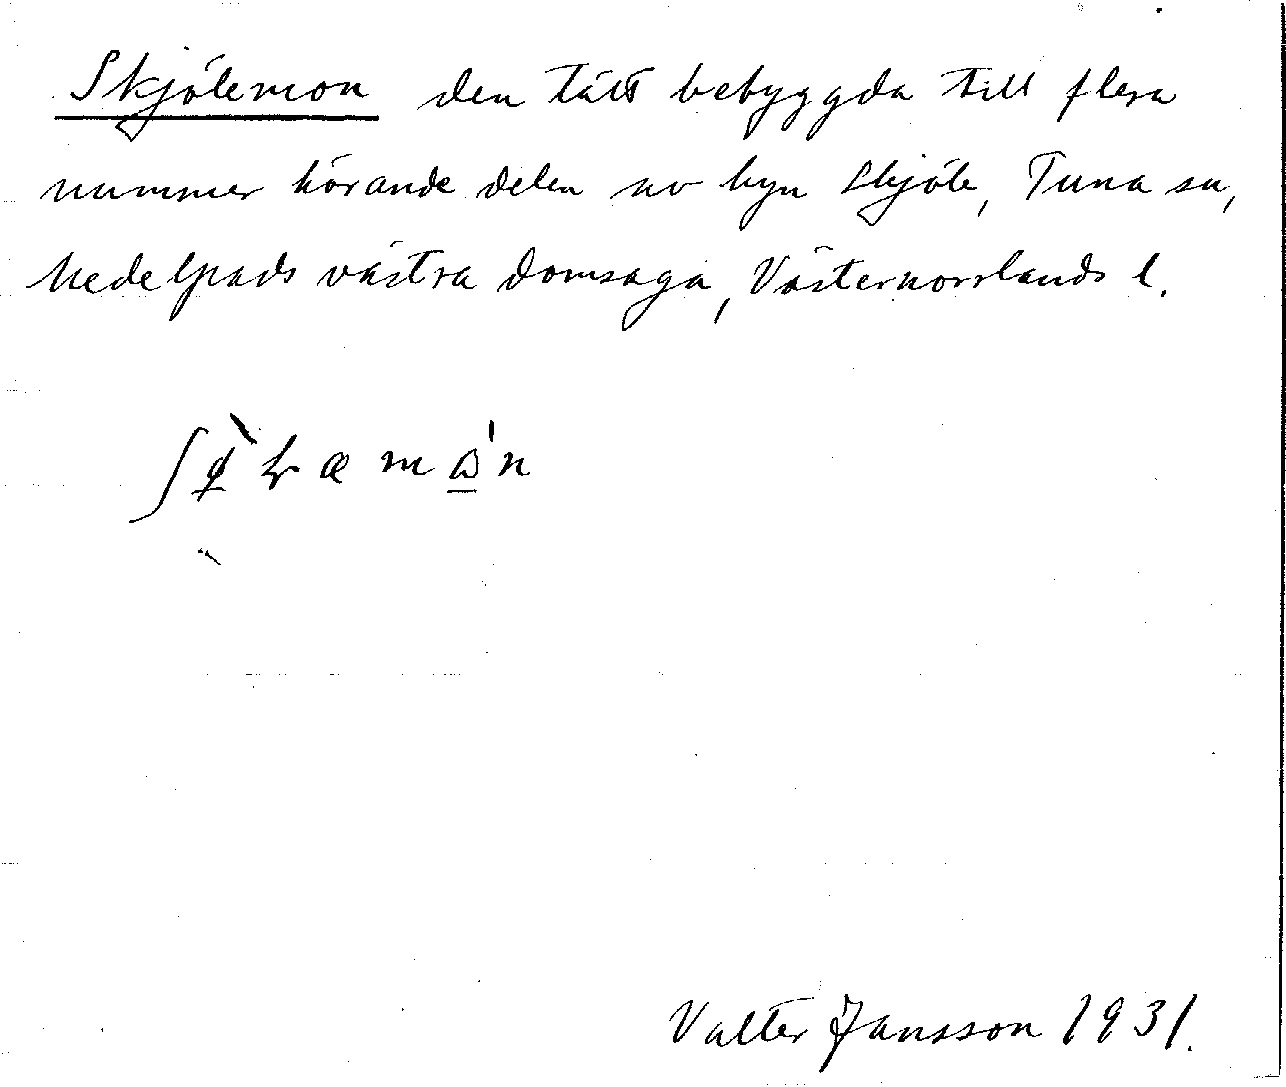 Skjölemon den tätt bebyggda till flera
nummer hörande delen av byn Skjöle, Tuna sn,
Medelpads västra domsaga, Västernorrlands l.
Valter Jansson 1931.